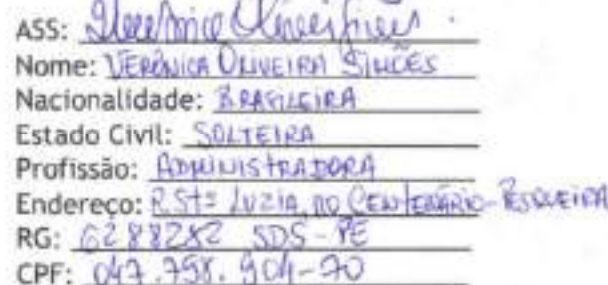 ASS: Verônica Oliveira Simões
Nome: VERÔNICA OLIVEIRA SIMÕES
Nacionalidade: BRASILEIRA
Estado Civil: SOLTEIRA
Profissão: ADMINISTRADORA
Endereço: R. Stª LUZIA, 110 CENTENÁRIO-PESQUEIRA
RG: 6288282 SDS-PE
CPF: 047.758.904-70